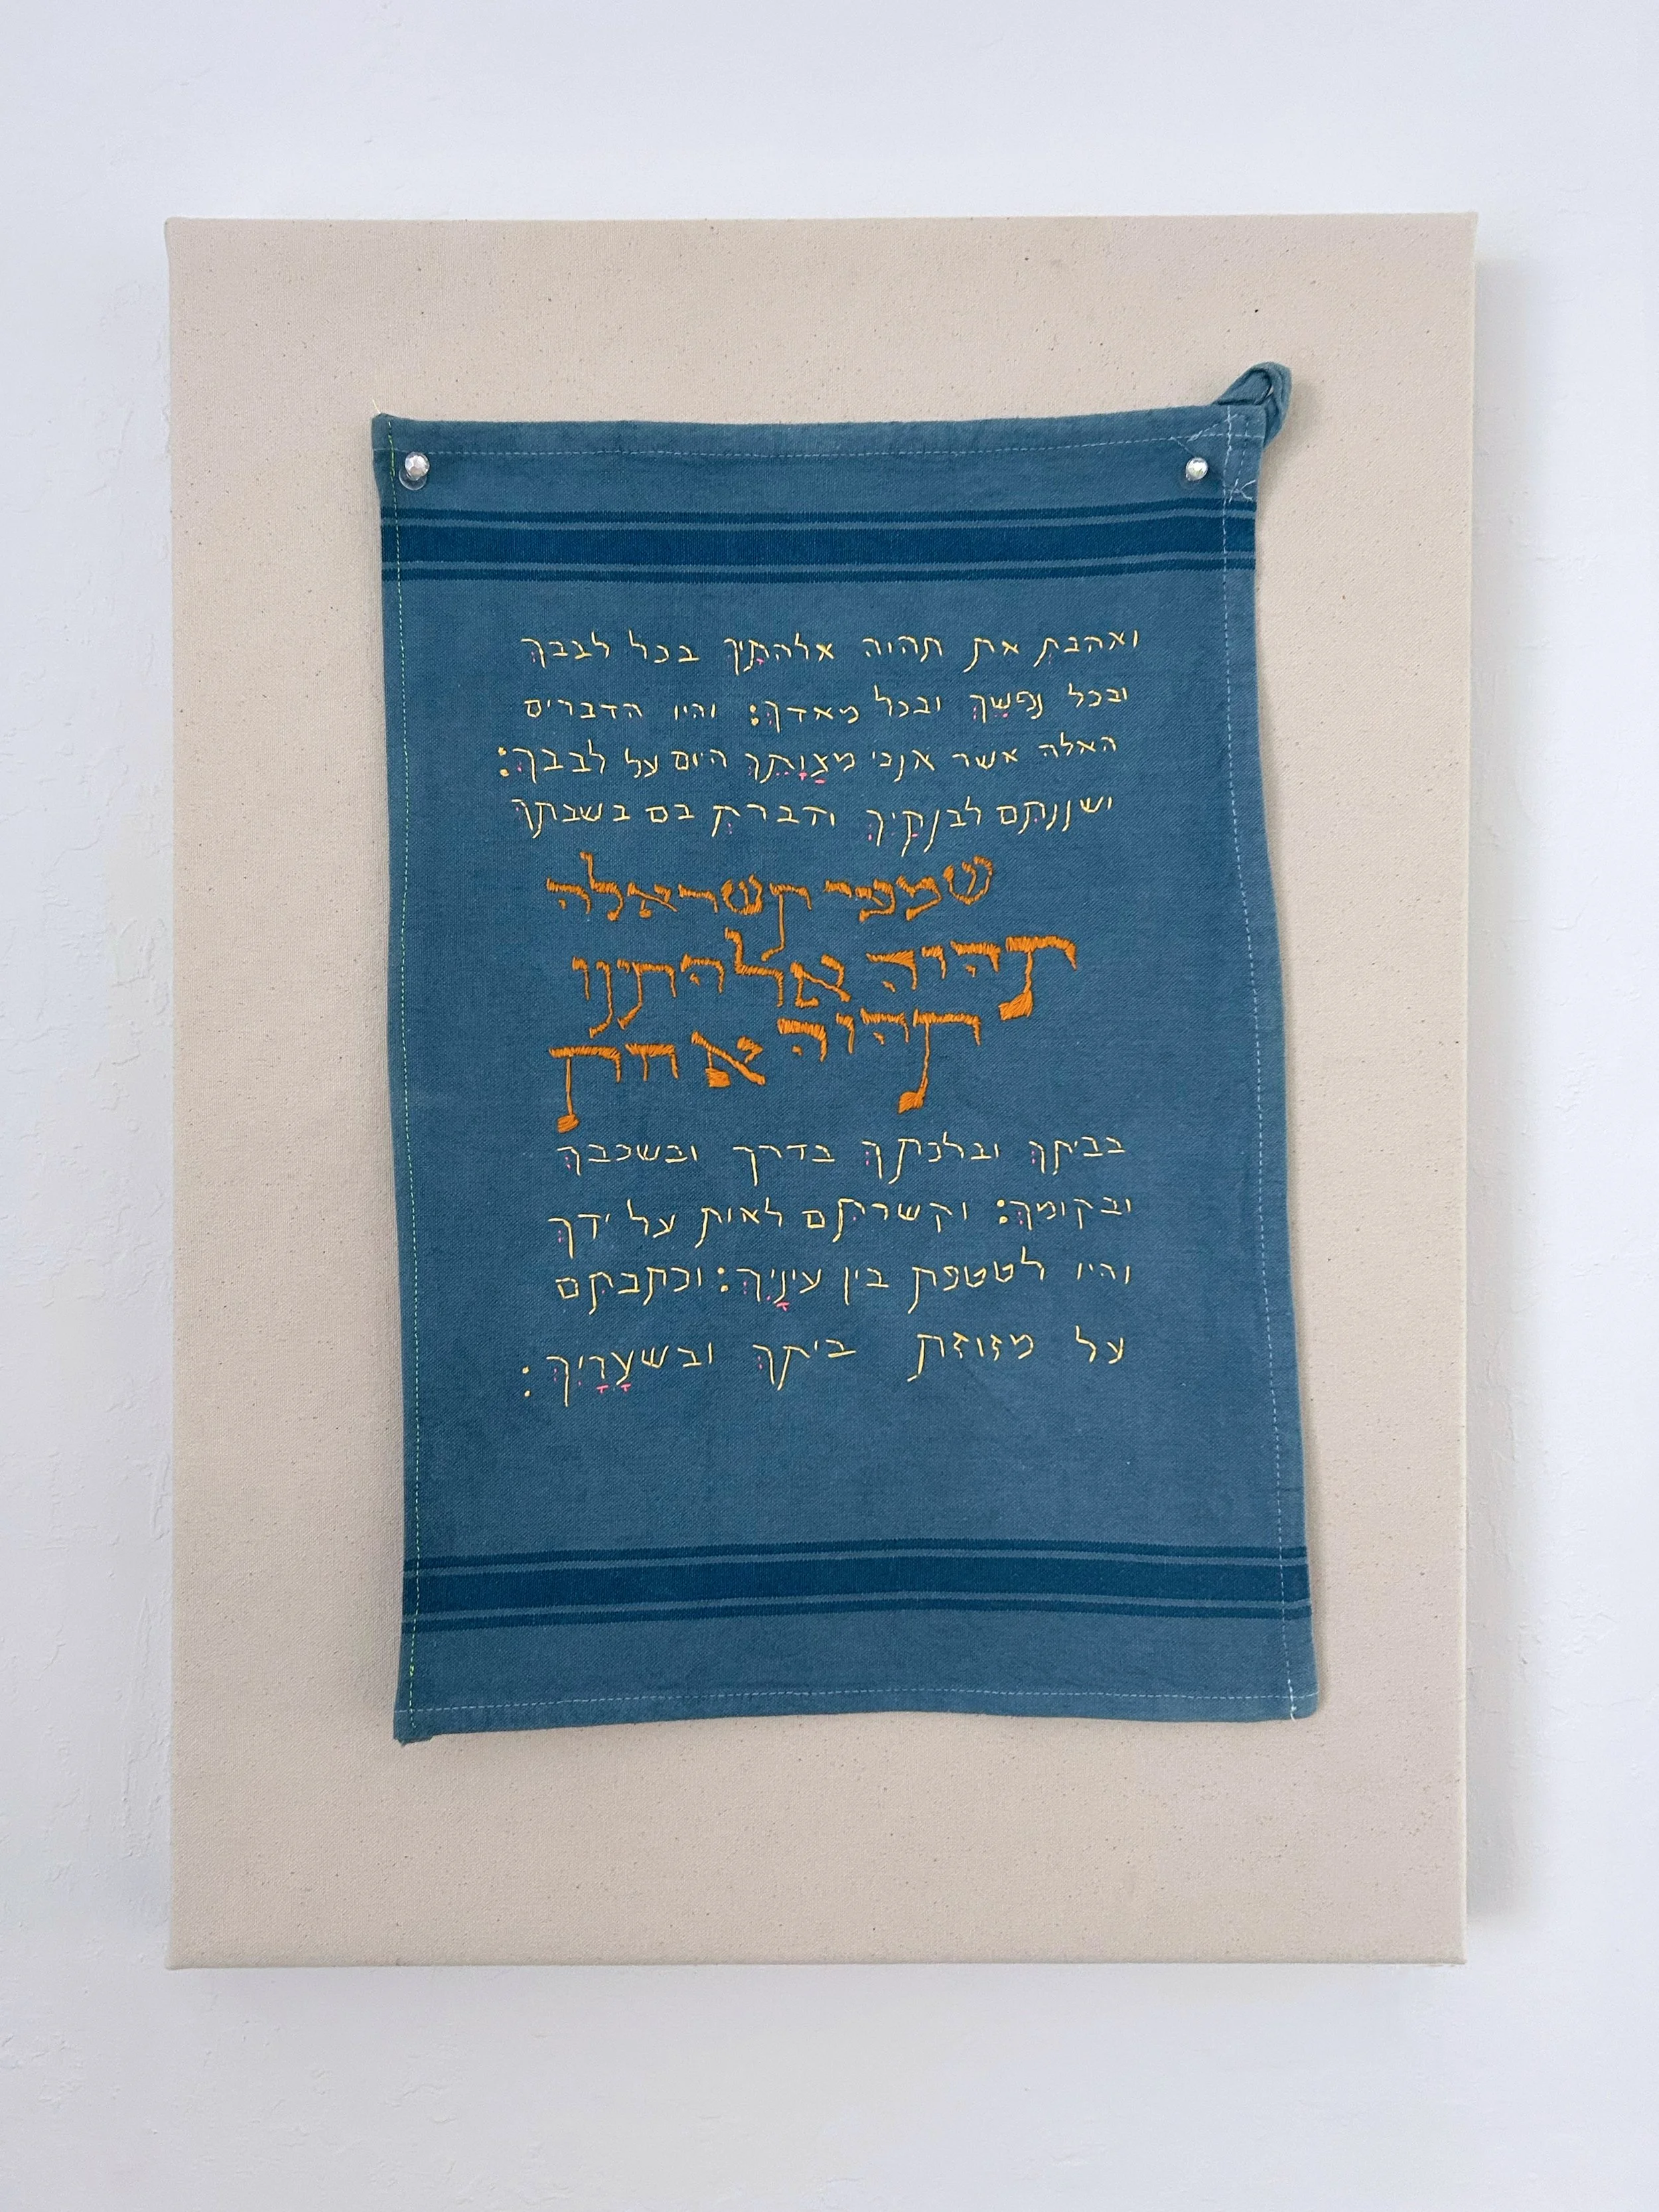 ואהבת את תהוה אלהתיך בכל לבבך
ובכל נפשך ובכל מאדך: והיו הדברים
האלה אשר אנכי מצותך היום על לבבך:
ושננתם לבנתיך ודברת בם בשבתך
שמעי תשראלה
תהוה אלהתינו
תהוה אחת
בביתך ובלכתך בדרך ובשכבך
ובקומך: וקשרתם לאות על ידך
והיו לטטפת בין עיניך: וכתבתם
על מזוזת ביתך ובשעריך: